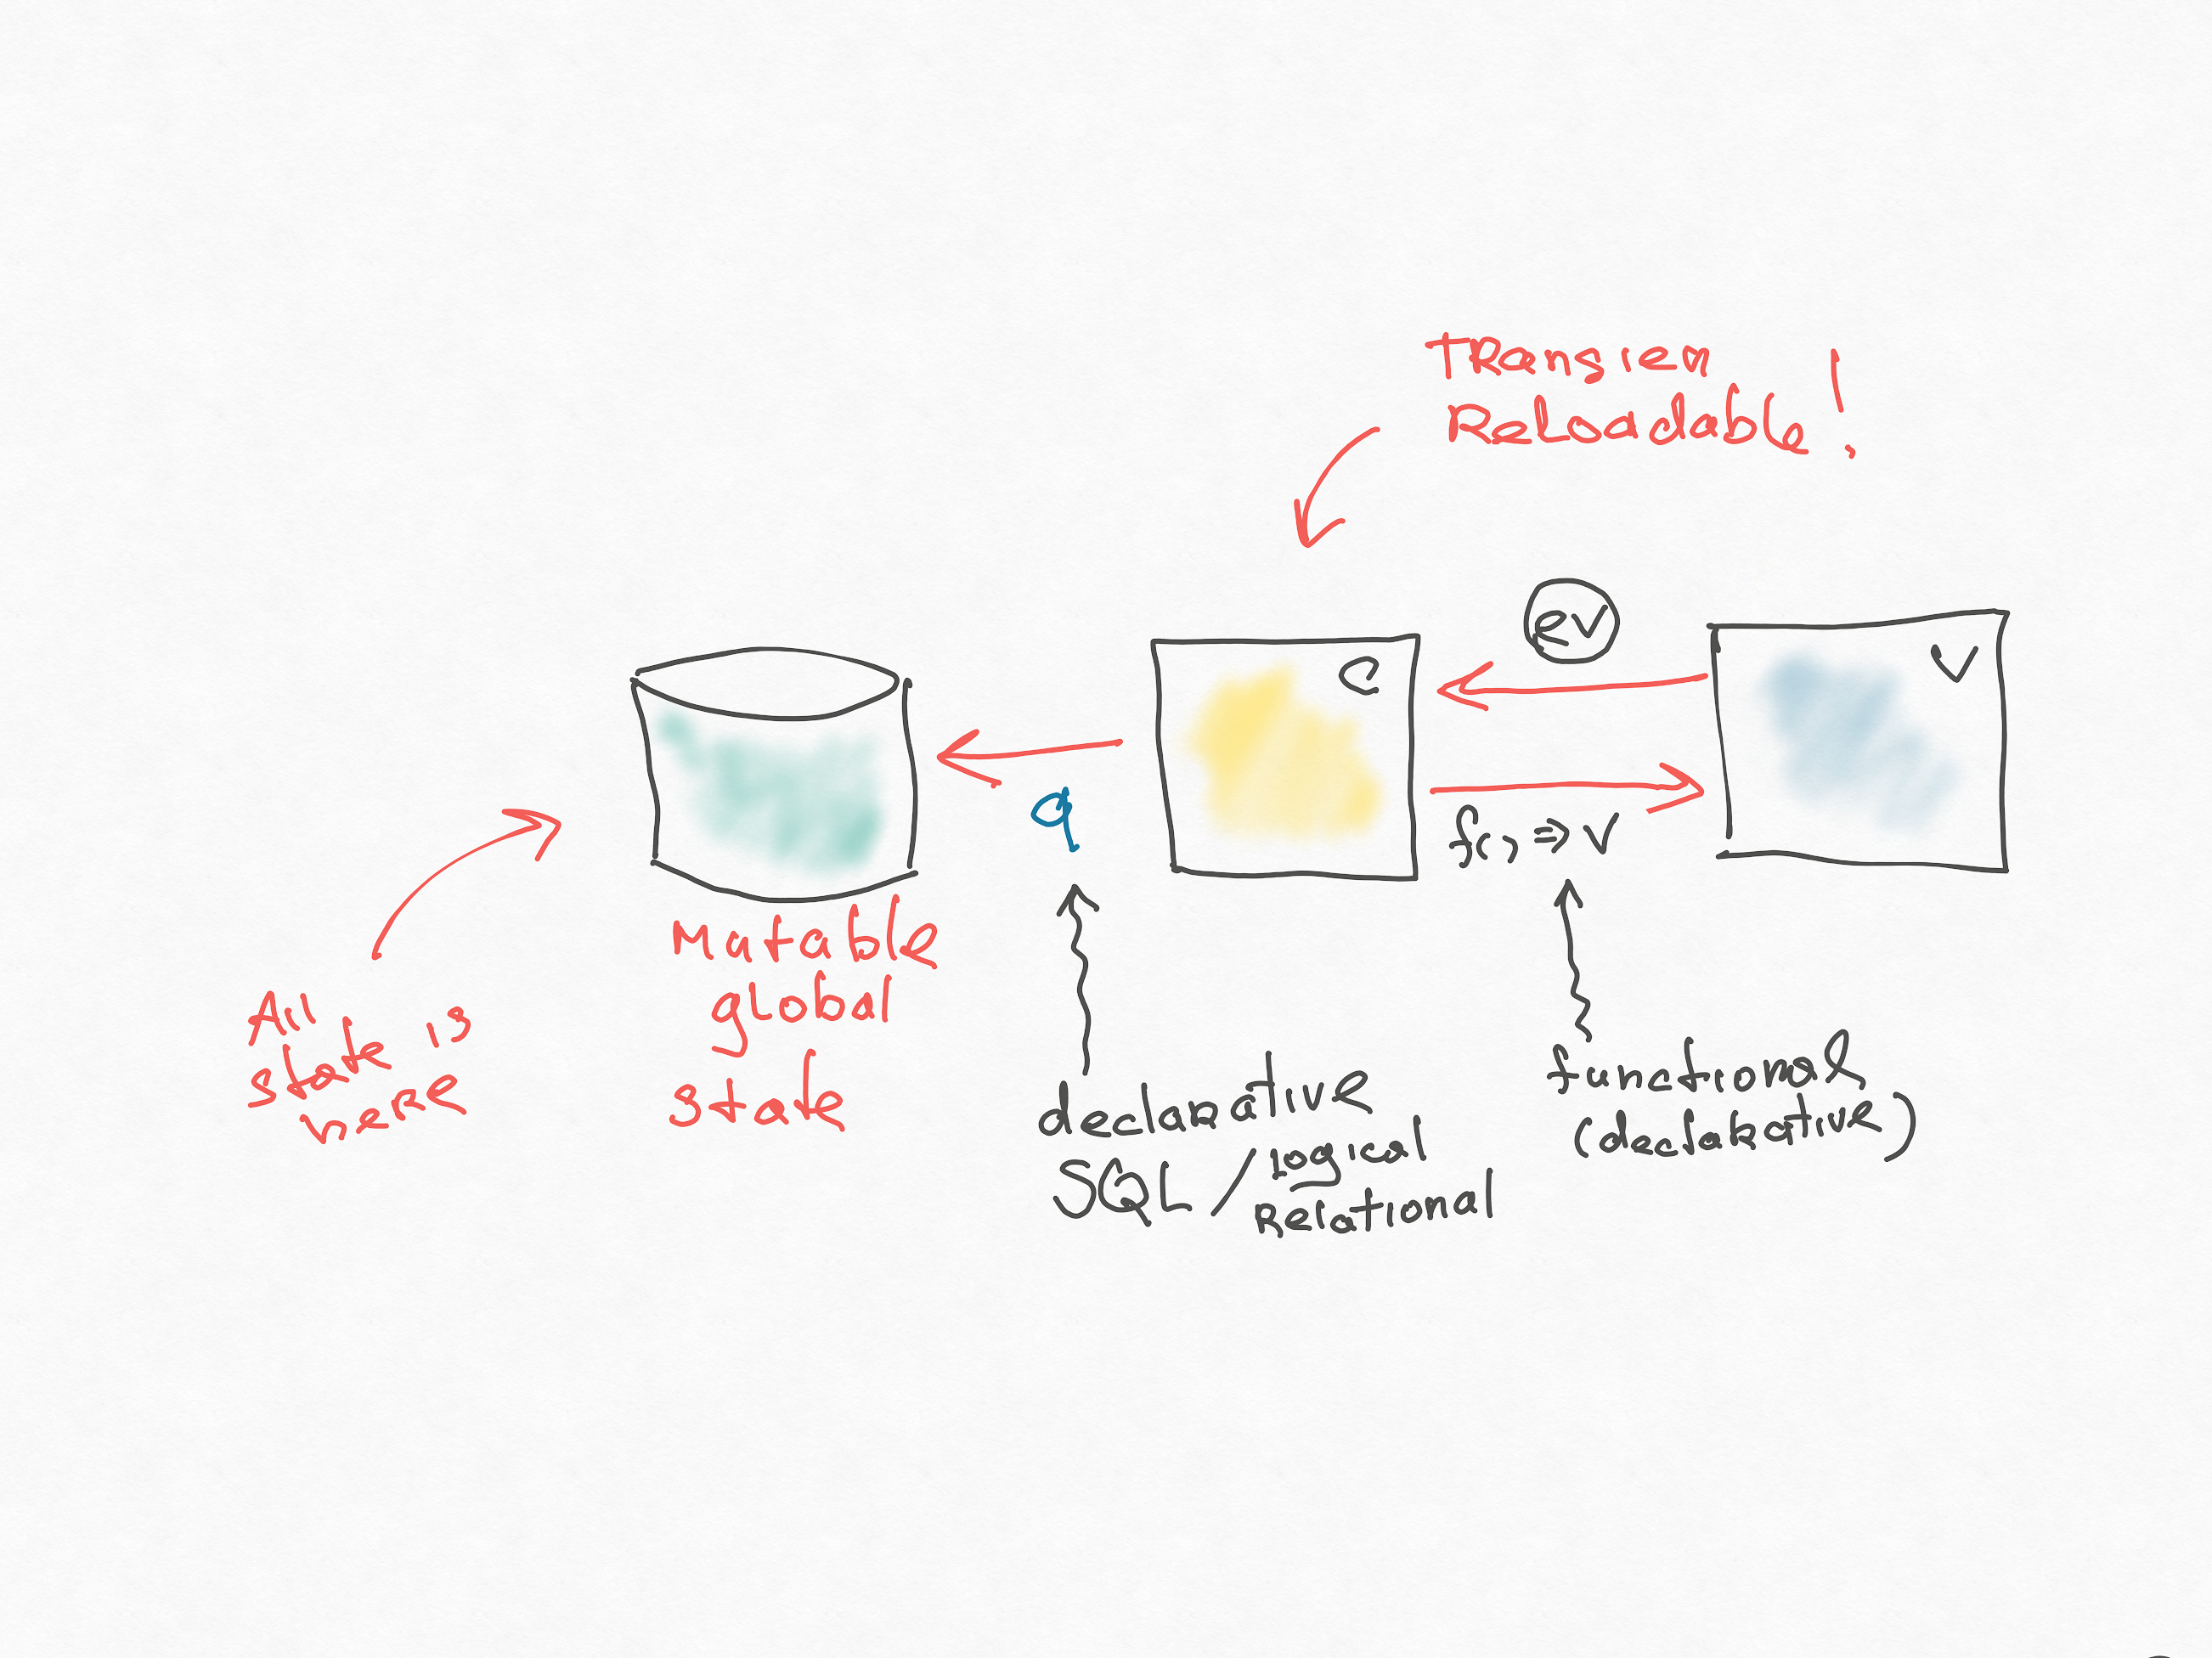 TRansien
ReLoadable!
ev
C
V
q
f() ⇒ V
Mutable
global
state
All
state is
heRe
declaRative
SQL / Logical
Relational
functional
(declaRative)